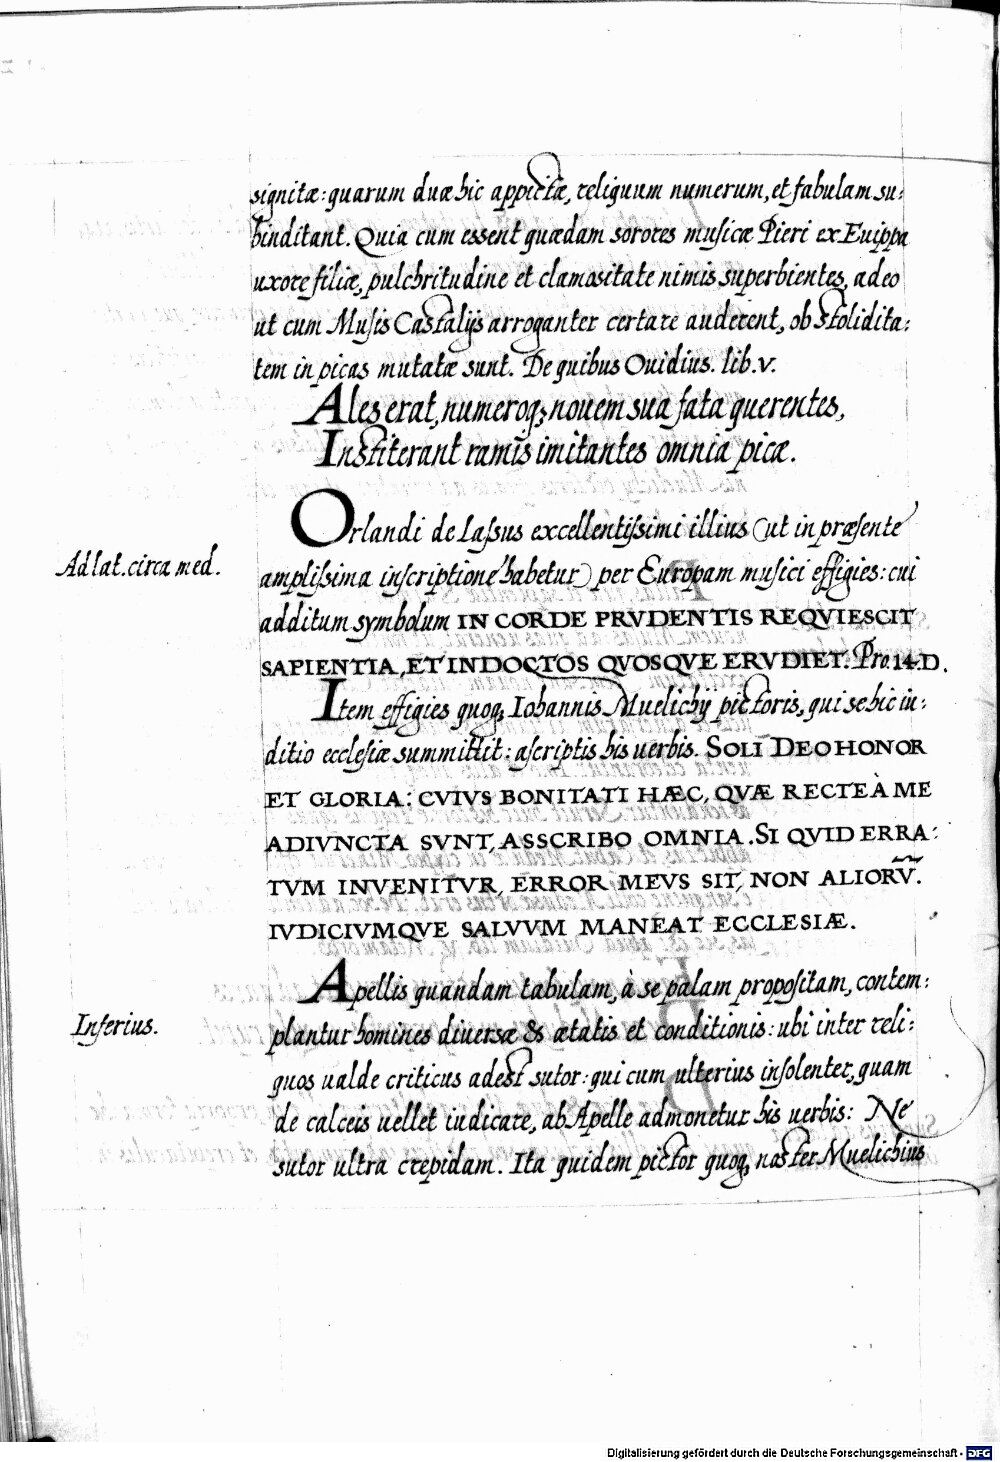 signitæ: quarum duæ hic appictæ, reliquum numerum, et fabulam su:
binditant. Quia cum essent quædam sorores musicæ Pieri ex Euippa
uxore filiæ, pulchritudine et clamositate nimis superbientes, adeo
ut cum Musis Castalijs arroganter certare auderent, ob stolidita:
tem in picas mutatæ sunt. De quibus Ouidius. lib. v.
Ales erat, numeroq; nouem sua fata querentes,
Institerant ramis imitantes omnia picæ.
Orlandi de Lassus excellentissimi illius (ut in præsente
Ad lat. circa med.
amplissima inscriptione habetur) per Europam musici effigies: cui
additum symbolum IN CORDE PRVDENTIS REQVIESCIT
SAPIENTIA, ET INDOCTOS QVOSQVE ERVDIET. Pro. 14. D.
Item effigies quoq; Iohannis Muelichij pictoris, qui se hic iu:
ditio ecclesiæ summittit: ascriptis his uerbis. SOLI DEO HONOR
ET GLORIA: CVIVS BONITATI HÆC, QVÆ RECTE À ME
ADIVNCTA SVNT, ASSCRIBO OMNIA. SI QVID ERRA:
TVM INVENITVR, ERROR MEVS SIT, NON ALIORṼ.
IVDICIVMQVE SALVVM MANEAT ECCLESIÆ.
Apellis quandam tabulam, à se palam propositam, contem:
Inferius.
plantur homines diuersæ & ætatis et conditionis: ubi inter reli:
quos ualde criticus adest sutor: qui cum ulterius insolenter, quam
de calceis uellet iudicare, ab Apelle admonetur his uerbis: Ne
sutor ultra crepidam. Ita quidem pictor quoq; noster Muelichius
Digitalisierung gefördert durch die Deutsche Forschungsgemeinschaft - DFG